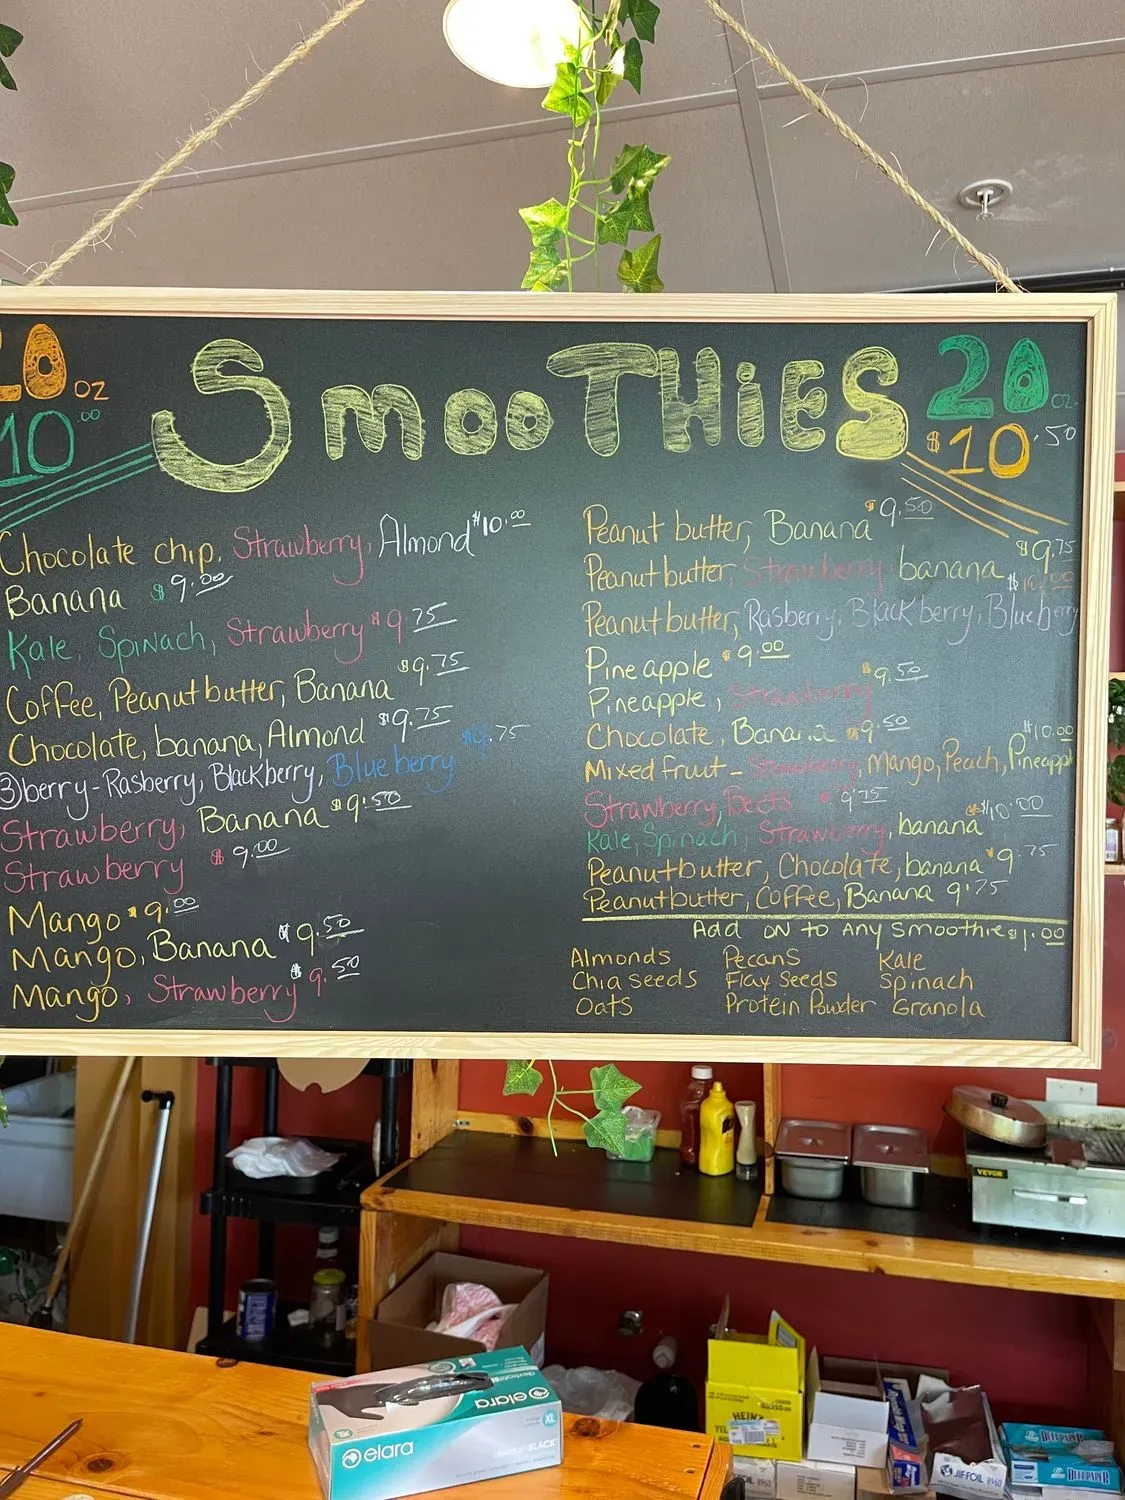 20 OZ
10.00
SmooTHiES
20 OZ
$10.50
Chocolate chip, Strawberry, Almond $10.00
Banana $9.00
Kale, Spinach, Strawberry $9.75
Coffee, Peanut butter, Banana $9.75
Chocolate, banana, Almond $9.75
③berry - Rasberry, Blackberry, Blueberry $9.75
Strawberry, Banana $9.50
Strawberry $9.00
Mango $9.00
Mango, Banana $9.50
Mango, Strawberry $9.50
Peanut butter, Banana $9.50
Peanut butter, Strawberry, banana $9.75
Peanut butter, Rasberry, Blackberry, Blueberry $10.00
Pineapple $9.00
Pineapple, Strawberry $9.50
Chocolate, Banana $9.50
Mixed fruit - Strawberry, Mango, Peach, Pineappl $10.00
Strawberry, Beets $9.75
Kale, Spinach, Strawberry, banana $10.00
Peanutbutter, Chocolate, banana $9.75
Peanutbutter, Coffee, Banana 9.75
Add on to any smoothie $1.00
Almonds Pecans Kale
Chia seeds Flax seeds Spinach
Oats Protein Powder Granola
VEVOR
elara
XL
elara
BLACK
HEINZ
JIFFOIL 8960